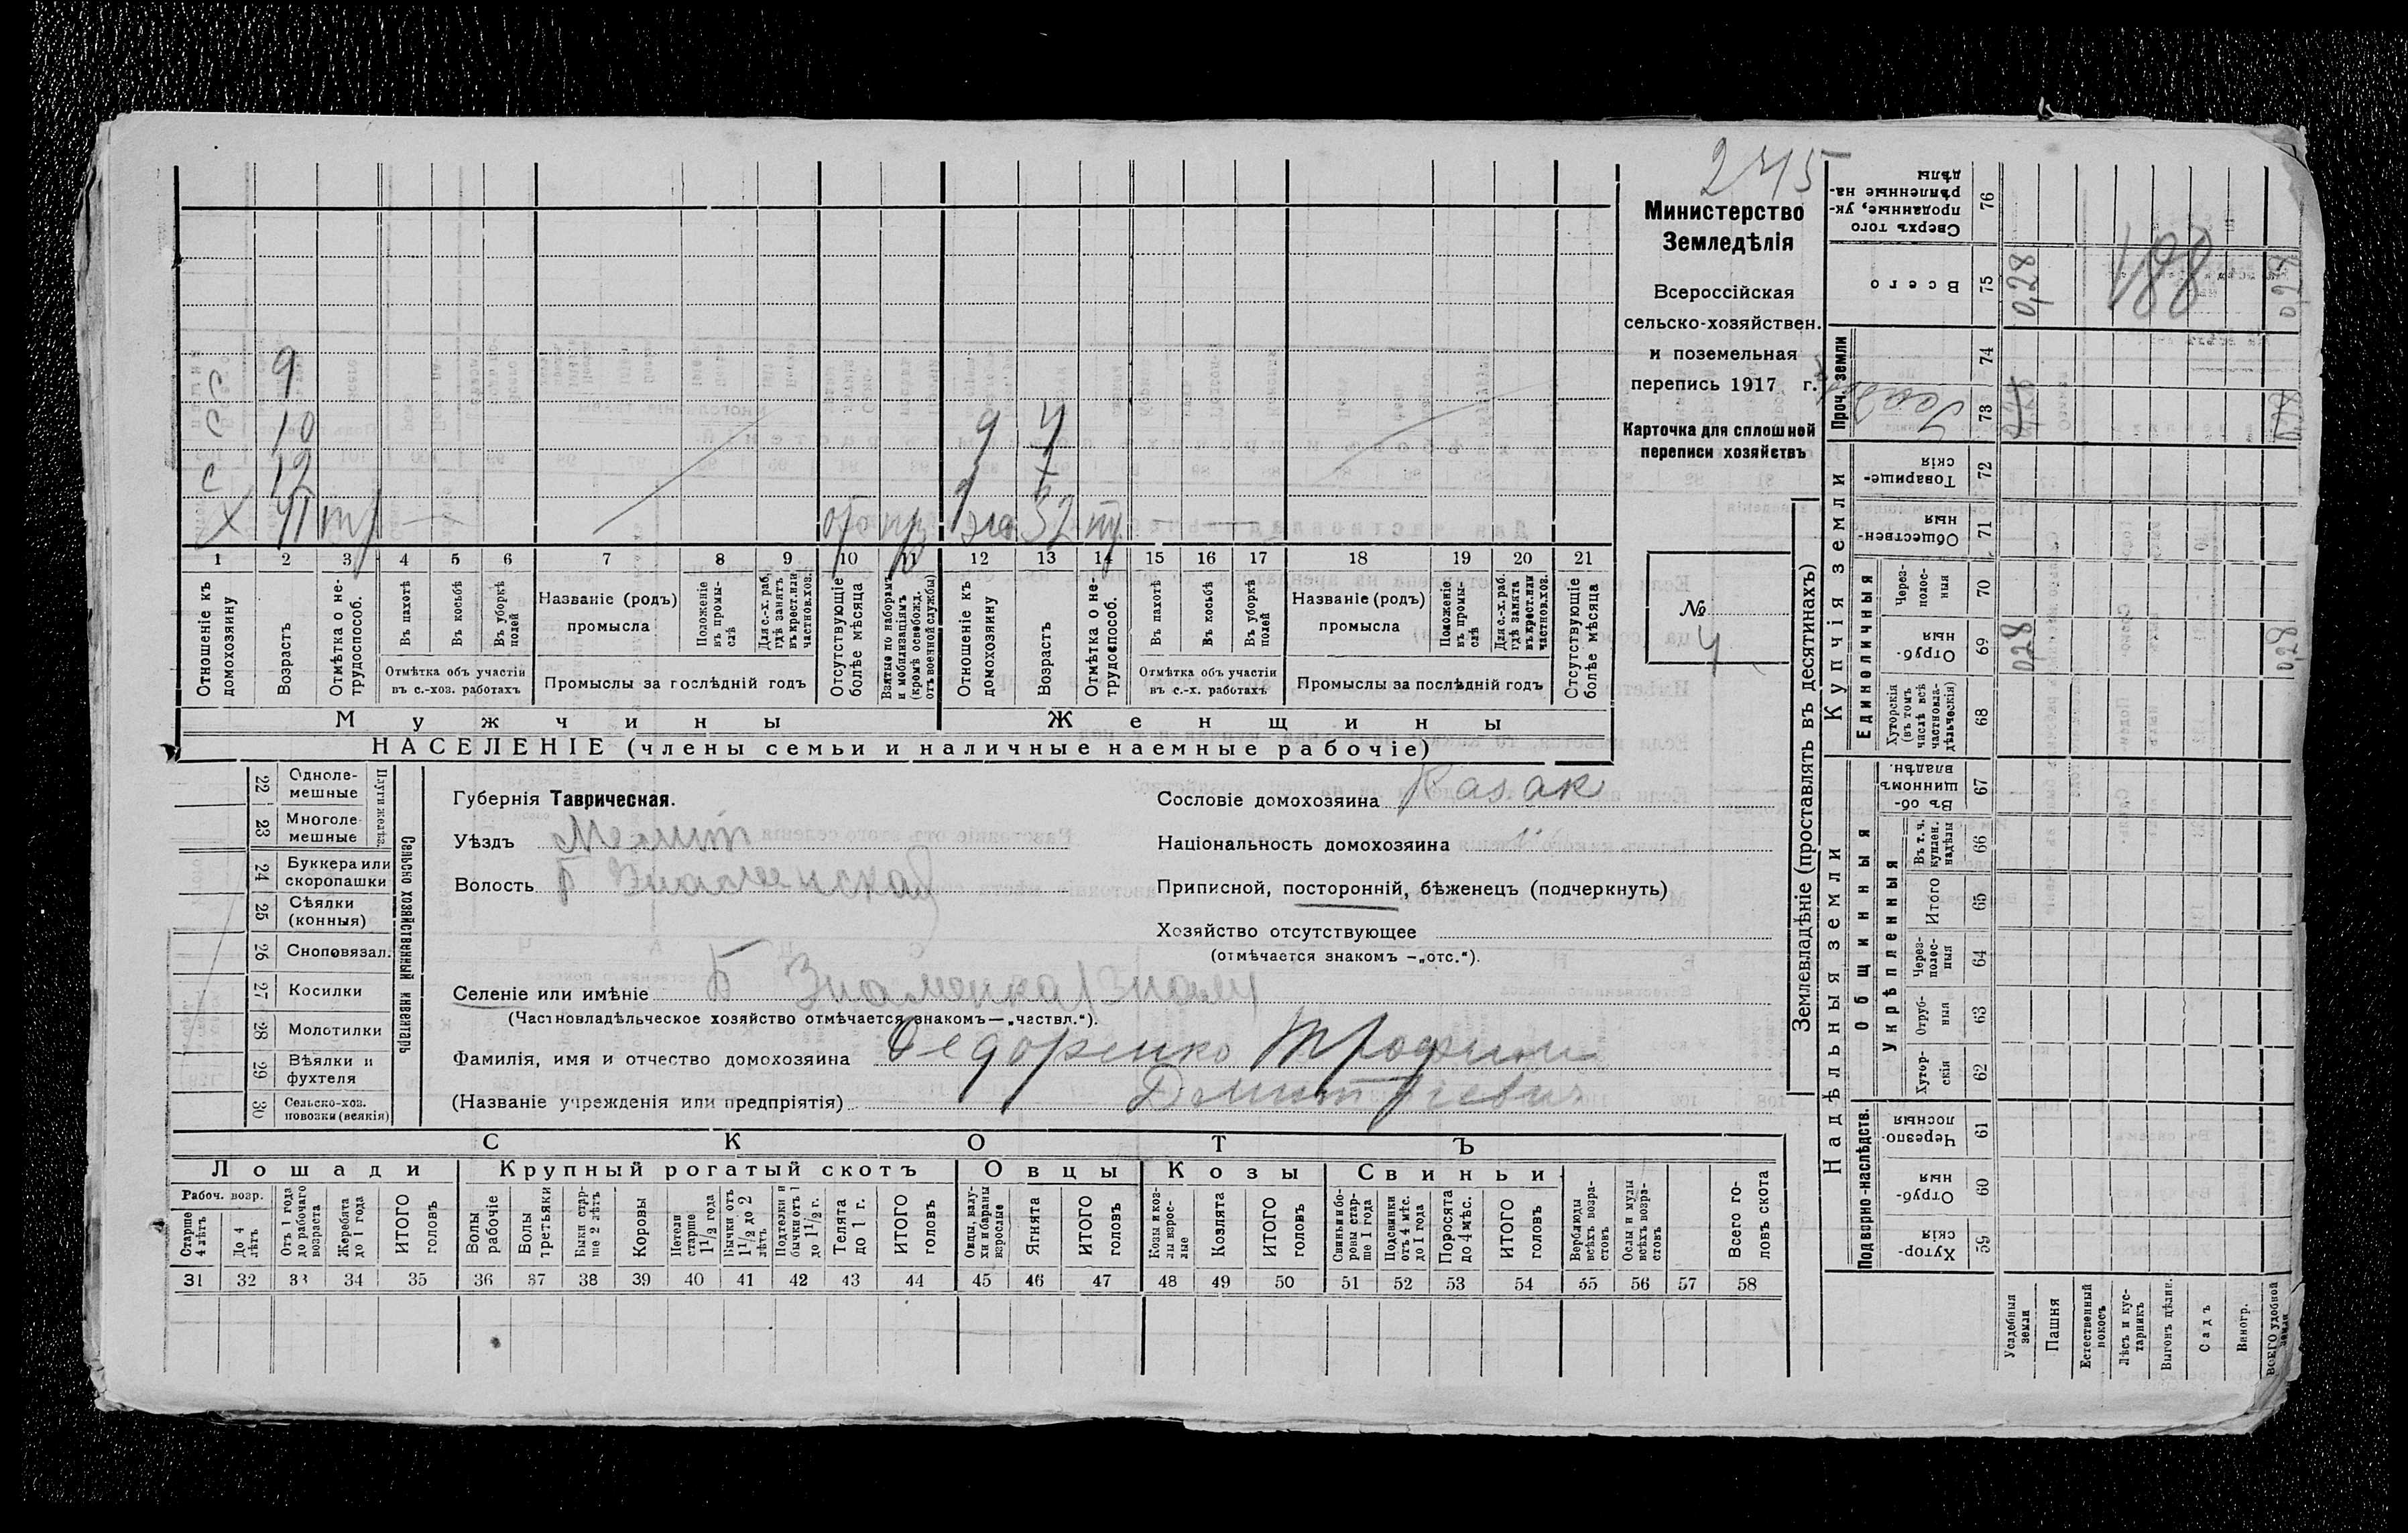 245
Министерство
Земледѣлія
Всероссійская
сельско-хозяйствен.
и поземельная
перепись 1917 г.
Карточка для сплошной
переписи хозяйствъ
№
4
С 9
С 10 9 4
С 12
Х 41 тр 32
1 2 3 4 5 6 7 8 9 10 11 12 13 14 15 16 17 18 19 20 21
Отношеніе къ домохозяину
Возрастъ
Отмѣтка о не-трудоспособ.
Въ пахотѣ
Въ косьбѣ
Въ уборкѣ полей
Отмѣтка объ участіи въ с.-хоз. работахъ
Названіе (родъ) промысла
Положеніе въ промы-слѣ
Для с.-х. раб. гдѣ занятъ въ крест. или частнов. хоз.
Промыслы за послѣдній годъ
Отсутствующіе болѣе мѣсяца
Взятые по наборамъ и мобилизаціямъ (кромѣ освобожд. отъ военной службы)
Отношеніе къ домохозяину
Возрастъ
Отмѣтка о не-трудоспособ.
Въ пахотѣ
Въ косьбѣ
Въ уборкѣ полей
Отмѣтка объ участіи въ с.-х. работахъ
Названіе (родъ) промысла
Положеніе въ промы-слѣ
Для с.-х. раб. гдѣ занята въ крест. или частнов. хоз.
Промыслы за послѣдній годъ
Отсутствующіе болѣе мѣсяца
Мужчины Женщины
НАСЕЛЕНІЕ (члены семьи и наличные наемные рабочіе)
Сельско хозяйственный инвентарь
Плуги желѣз.
22 Одноле-мешные
23 Многоле-мешные
24 Буккера или скоропашки
25 Сѣялки (конныя)
26 Сноповязал.
27 Косилки
28 Молотилки
29 Вѣялки и фухтеля
30 Сельско-хоз. повозки (всякія)
Губернія Таврическая.
Уѣздъ Мелит
Волость Б Знаменская
Селеніе или имѣніе Б Знаменка / Знам
(Частновладѣльческое хозяйство отмѣчается знакомъ—„частвл.“).
Фамилія, имя и отчество домохозяина Федоренко Трофим
(Названіе учрежденія или предпріятія) Дмитриевич
Сословіе домохозяина Казак
Національность домохозяина
Приписной, посторонній, бѣженецъ (подчеркнуть)
Хозяйство отсутствующее
(отмѣчается знакомъ —„отс.“).
СКОТЪ
Лошади Крупный рогатый скотъ Овцы Козы Свиньи
Рабоч. возр.
Старше 4 лѣтъ
До 4 лѣтъ
Отъ 1 года до рабочаго возраста
Жеребята до 1 года
ИТОГО головъ
Волы рабочіе
Волы третьяки
Быки стар-ше 2 лѣтъ
Коровы
Нетели старше 1 1/2 года
Бычки отъ 1 1/2 до 2 лѣтъ
Подтелки и бычки отъ 1 до 1 1/2 г.
Телята до 1 г.
ИТОГО головъ
Овцы, валу-хи и бараны взрослые
Ягнята
ИТОГО головъ
Козы и коз-лы взрос-лые
Козлята
ИТОГО головъ
Свиньи и бо-ровы стар-ше 1 года
Подсвинки отъ 4 мѣс. до 1 года
Поросята до 4 мѣс.
ИТОГО головъ
Верблюды всѣхъ возра-стовъ
Ослы и мулы всѣхъ возра-стовъ
Всего го-ловъ скота
31 32 33 34 35 36 37 38 39 40 41 42 43 44 45 46 47 48 49 50 51 52 53 54 55 56 57 58
Землевладѣніе (проставлять въ десятинахъ)
Надѣльныя земли
Подворно-наслѣдств.
Хутор-скія 59
Отруб-ныя 60
Черезпо-лосныя 61
Общинныя
Укрѣпленныя
Хутор-скія 62
Отруб-ныя 63
Через-полос-ныя 64
Итого 65
Въ т. ч. куплен. надѣлы 66
Въ об-щинномъ владѣн. 67
Купчія земли
Единоличныя
Хуторскія (въ томъ числѣ всѣ частновла-дѣльческія) 68
Отруб-ныя 69
Через-полос-ныя 70
Обществен-ныя 71
Товарище-скія 72
Проч. земли
73
74
Всего 75
Сверхъ того проданные, ук-рѣпленные на-дѣлы 76
Усадебныя земли
Пашня
Естественный покосъ
Лѣсъ и кус-тарникъ
Выгонъ цѣлин.
Садъ
Виногр.
ВСЕГО удобной земли
0,28
0,28
0,28
0,28
188